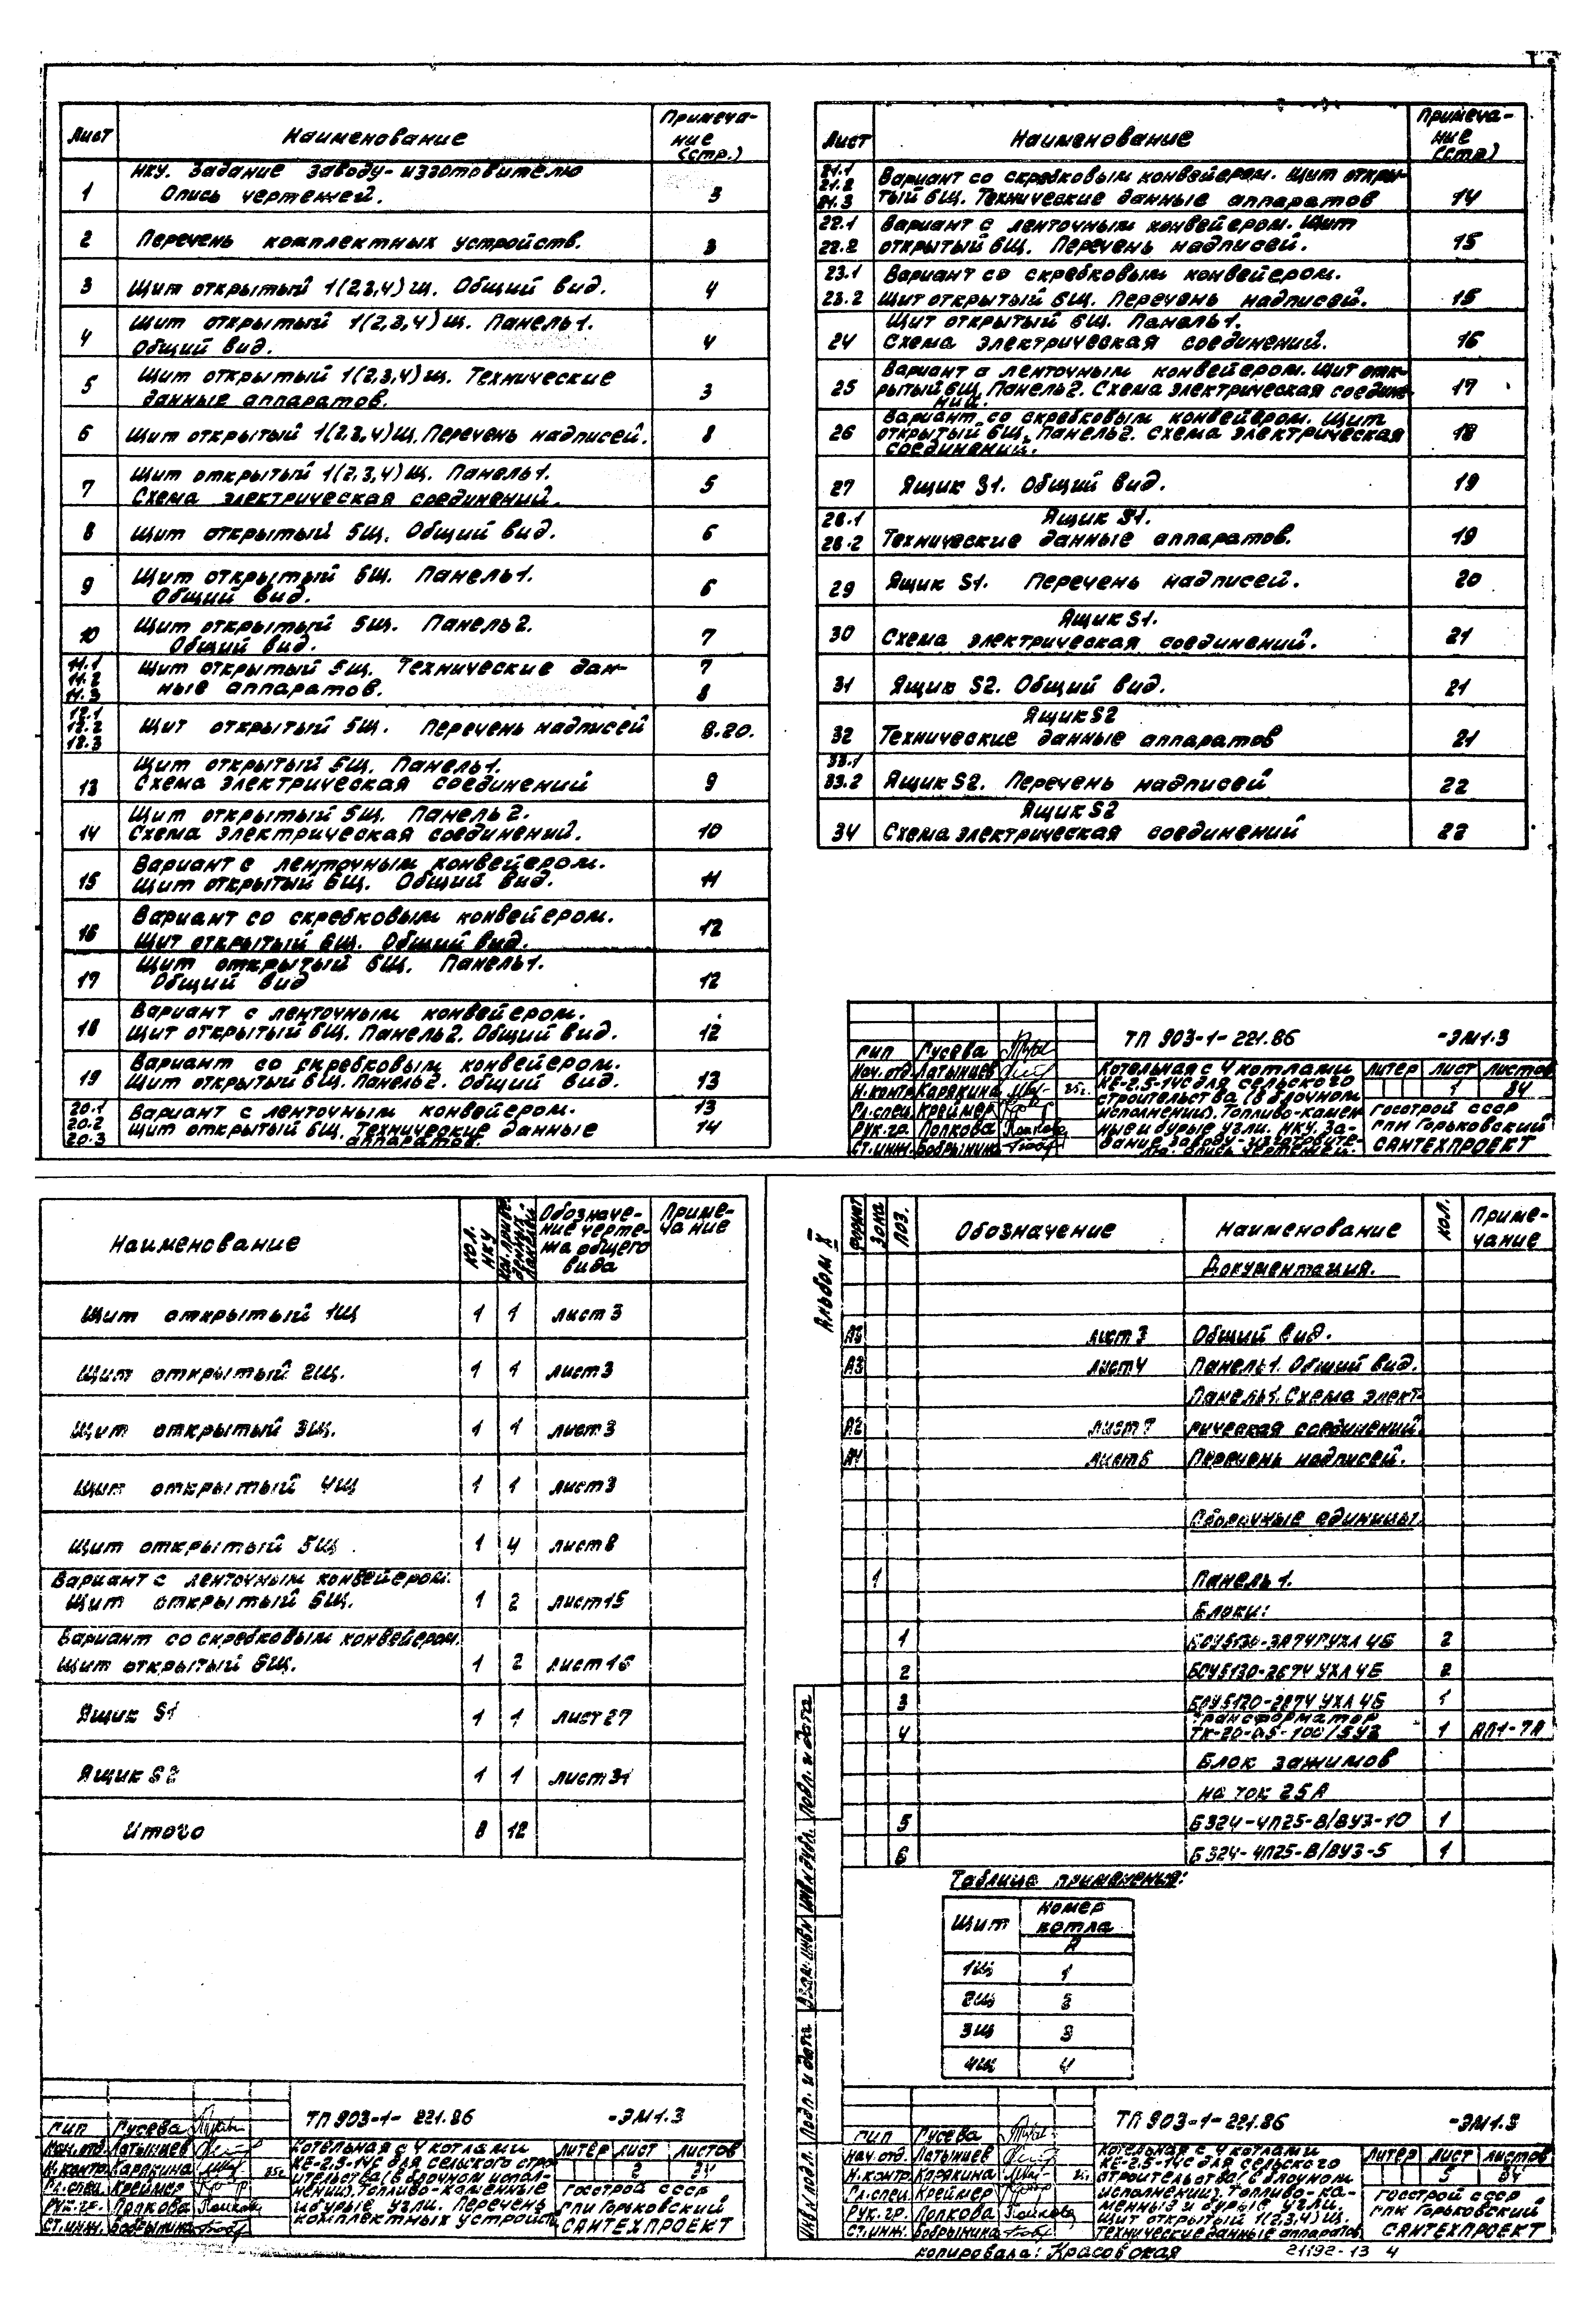 Лист Наименование Примеча-
ние
(стр.)
НКУ. Задание заводу-изготовителю
1 Опись чертежей. 3
2 Перечень комплектных устройств. 3
3 Щит открытый 1(2,3,4)щ. Общий вид. 4
Щит открытый 1(2,3,4)щ. Панель 1.
4 Общий вид. 4
Щит открытый 1(2,3,4)щ. Технические
5 данные аппаратов. 3
6 Щит открытый 1(2,3,4)щ. Перечень надписей. 8
Щит открытый 1(2,3,4)щ. Панель 1.
7 Схема электрическая соединений. 5
8 Щит открытый 5щ. Общий вид. 6
Щит открытый 5щ. Панель 1.
9 Общий вид. 6
Щит открытый 5щ. Панель 2.
10 Общий вид. 7
11.1 Щит открытый 5щ. Технические дан- 7
11.2
11.3 ные аппаратов. 8
12.1
12.2 Щит открытый 5щ. Перечень надписей 8.20.
12.3
Щит открытый 5щ. Панель 1.
13 Схема электрическая соединений 9
Щит открытый 5щ. Панель 2.
14 Схема электрическая соединений. 10
Вариант с ленточным конвейером.
15 Щит открытый 6щ. Общий вид. 11
Вариант со скребковым конвейером.
16 Щит открытый 6щ. Общий вид. 12
Щит открытый 6щ. Панель 1.
17 Общий вид 12
Вариант с ленточным конвейером.
18 Щит открытый 6щ. Панель 2. Общий вид. 12
Вариант со скребковым конвейером.
19 Щит открытый 6щ. Панель 2. Общий вид. 13
20.1 Вариант с ленточным конвейером. 13
20.2 Щит открытый 6щ. Технические данные 14
20.3 аппаратов.
Лист Наименование Примеча-
ние
(стр)
21.1
21.2 Вариант со скребковым конвейером. Щит откры-
21.3 тый 6щ. Технические данные аппаратов 14
22.1 Вариант с ленточным конвейером. Щит
22.2 открытый 6щ. Перечень надписей. 15
23.1 Вариант со скребковым конвейером.
23.2 Щит открытый 6щ. Перечень надписей. 15
Щит открытый 6щ. Панель 1.
24 Схема электрическая соединений. 16
Вариант с ленточным конвейером. Щит отк-
25 рытый 6щ. Панель 2. Схема электрическая соедине- 17
ний.
Вариант со скребковым конвейером. Щит
26 открытый 6щ. Панель 2. Схема электрическая 18
соединений.
27 Ящик S1. Общий вид. 19
28.1 Ящик S1.
28.2 Технические данные аппаратов. 19
29 Ящик S1. Перечень надписей. 20
Ящик S1.
30 Схема электрическая соединений. 21
31 Ящик S2. Общий вид. 21
Ящик S2
32 Технические данные аппаратов 21
33.1
33.2 Ящик S2. Перечень надписей 22
Ящик S2
34 Схема электрическая соединений 22
ТП 903-1-221.86 -ЭМ1.3
ГИП Гусева
Нач.отд. Латышев
Н.контр. Карякина 85г.
Гл.спец. Креймер
Рук.гр. Попкова
Ст.инж. Бобрынина
Котельная с 4 котлами
КЕ-2.5-14с для сельского
строительства (в блочном
исполнении). Топливо-камен-
ные и бурые угли. НКУ. За-
дание заводу-изготовите-
лю. Опись чертежей.
Литер Лист Листов
1 34
Госстрой СССР
ГПИ Горьковский
САНТЕХПРОЕКТ
Наименование Кол. НКУ Обозначе-
ние черте-
жа общего
вида Приме-
чание
Щит открытый 1щ 1 1 лист 3
Щит открытый 2щ. 1 1 лист 3
Щит открытый 3щ. 1 1 лист 3
Щит открытый 4щ 1 1 лист 3
Щит открытый 5щ. 1 4 лист 8
Вариант с ленточным конвейером.
Щит открытый 6щ. 1 2 лист 15
Вариант со скребковым конвейером.
Щит открытый 6щ. 1 2 лист 16
Ящик S1 1 1 лист 27
Ящик S2 1 1 лист 31
Итого 8 12
ТП 903-1-221.86 -ЭМ1.3
ГИП Гусева
Нач.отд. Латышев
Н.контр. Карякина 85г.
Гл.спец. Креймер
Рук.гр. Попкова
Ст.инж. Бобрынина
Котельная с 4 котлами
КЕ-2.5-14с для сельского стро-
ительства (в блочном испол-
нении). Топливо-каменные
и бурые угли. Перечень
комплектных устройств
Литер Лист Листов
2 34
Госстрой СССР
ГПИ Горьковский
САНТЕХПРОЕКТ
Альбом X
Формат Зона Поз. Обозначение Наименование Кол. Приме-
чание
Документация.
А3 лист 3 Общий вид.
А3 лист 4 Панель 1. Общий вид.
Панель 1. Схема элект-
А2 лист 7 рическая соединений.
А4 лист 6 Перечень надписей.
Сборочные единицы.
1 Панель 1.
Блоки:
1 2
2 БОУ5130-2674 УХЛ 4Б 2
3 БОУ5120-2874 УХЛ 4Б 1
Трансформатор
4 ТК-20-0.5-100/5У3 1 АП1-ТА
Блок зажимов
на ток 25А
5 БЗ24-4П25-В/ВУ3-10 1
6 БЗ24-4П25-В/ВУ3-5 1
Таблица применения:
Щит Номер
котла
А
1щ 1
2щ 2
3щ 3
4щ 4
Инв.N подл. Подп. и дата Взам. инв.N Инв.N дубл. Подп. и дата
ТП 903-1-221.86 -ЭМ1.3
ГИП Гусева
Нач.отд. Латышев
Н.контр. Карякина
Гл.спец. Креймер
Рук.гр. Попкова
Ст.инж. Бобрынина
Котельная с 4 котлами
КЕ-2.5-14с для сельского
строительства (в блочном
исполнении). Топливо-ка-
менные и бурые угли.
Щит открытый 1(2,3,4)щ.
Технические данные аппаратов
Литер Лист Листов
5 34
Госстрой СССР
ГПИ Горьковский
САНТЕХПРОЕКТ
Копировала: Красовская 21192-13 4